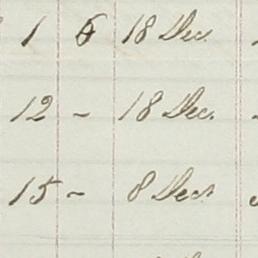 1 6 18 Dec.
12 - 18 Dec.
15 - 8 Decr